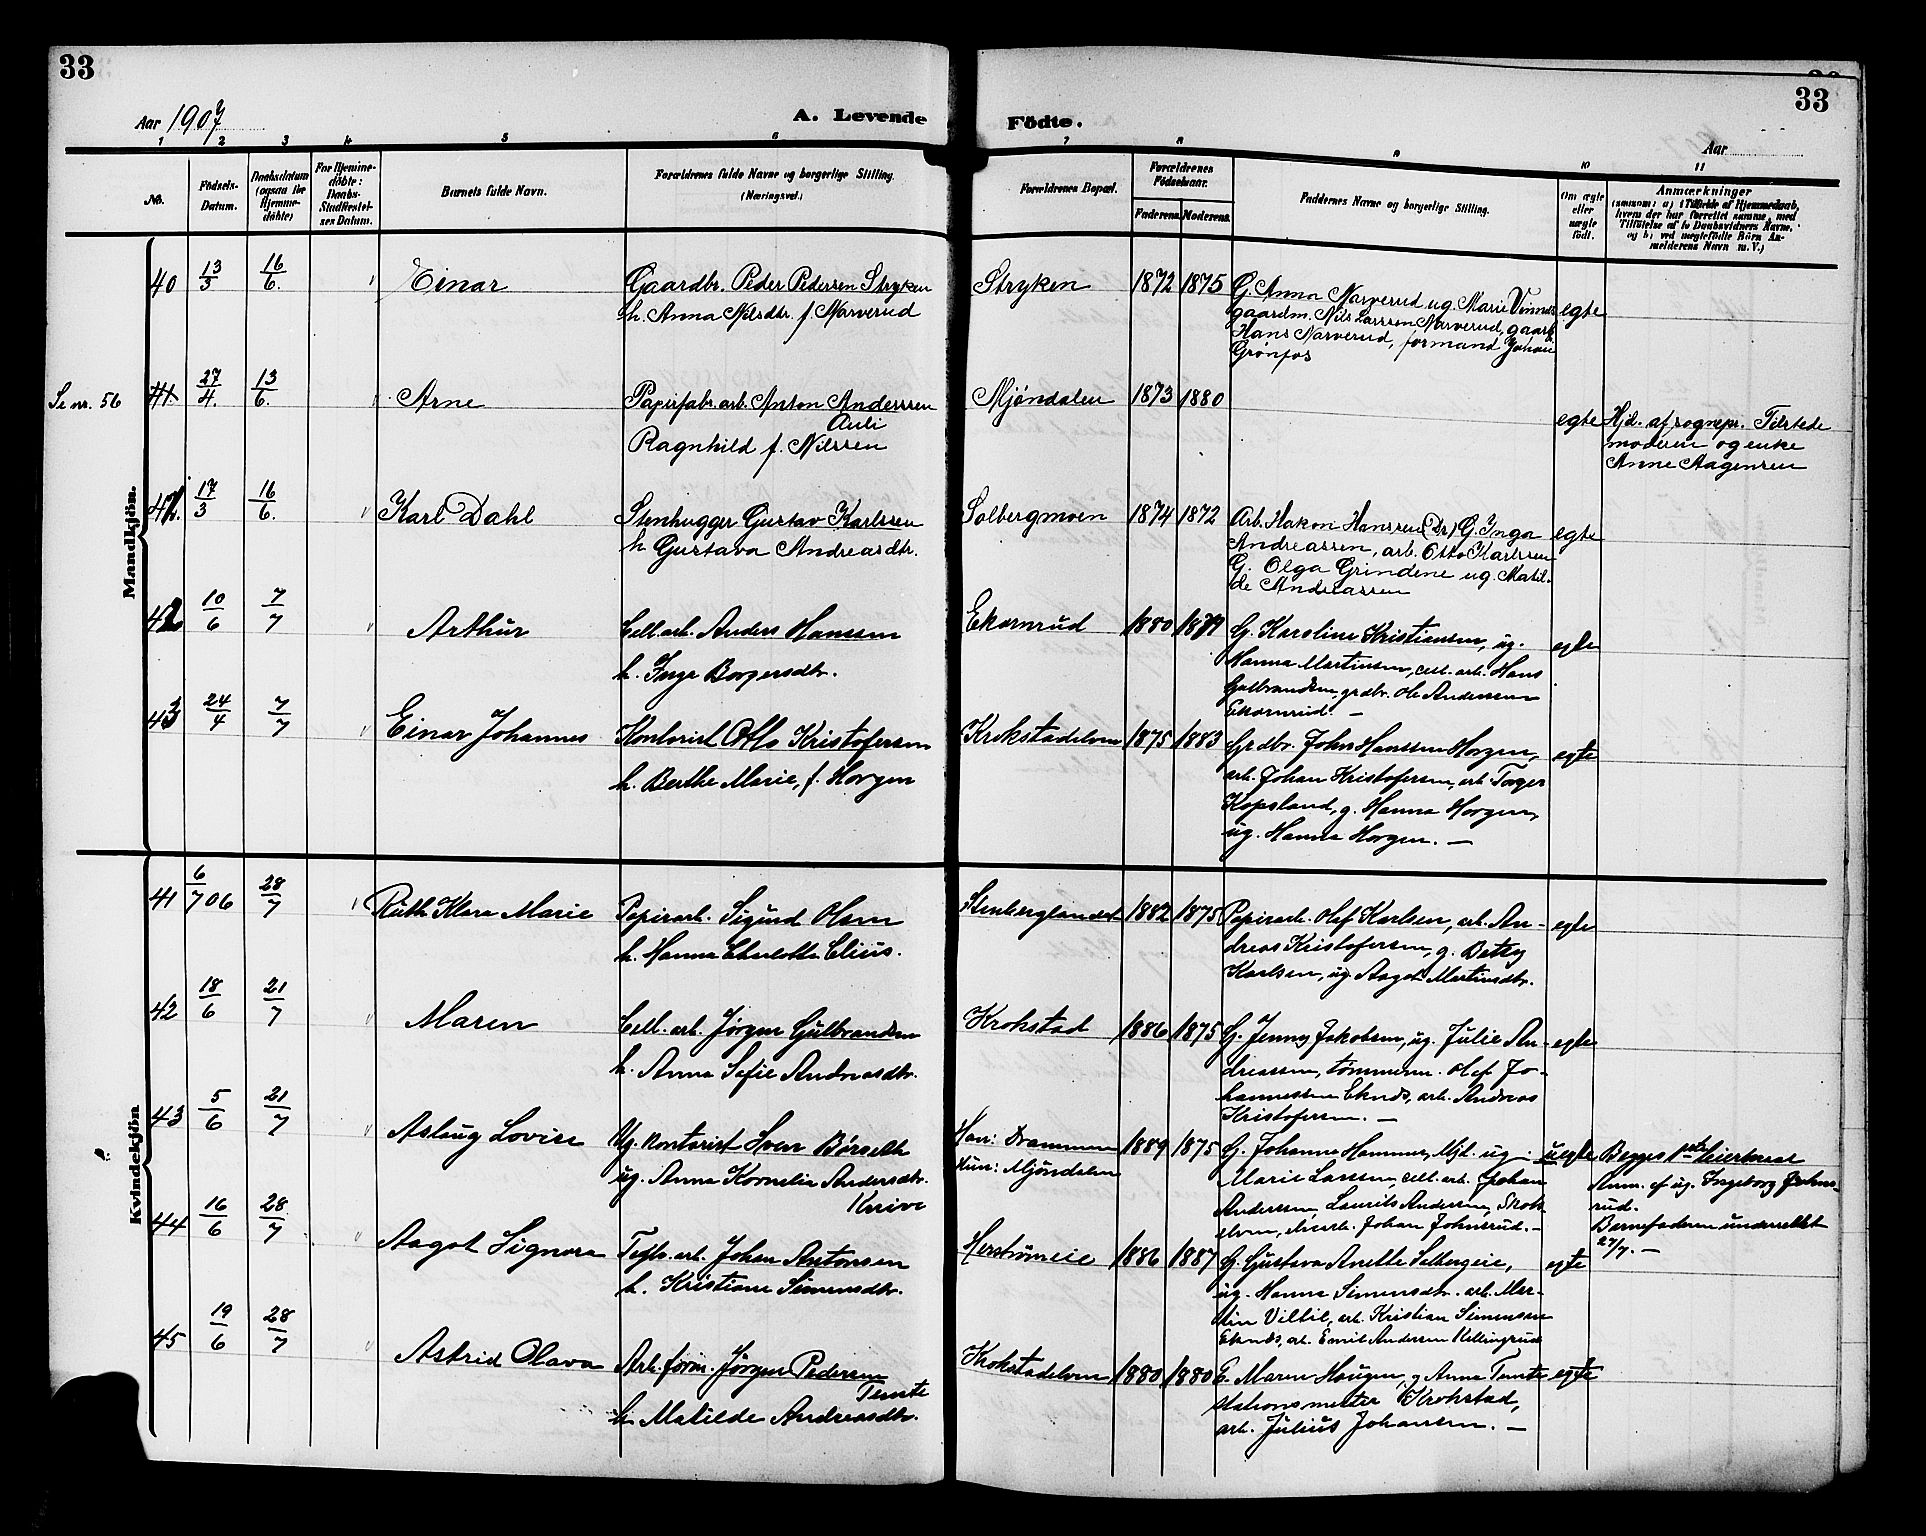 33
33
Aar 1907
A. Levende
Födte.
Aar
1 2 3 4 5 6 7 8 9 10 11
No.
Födsels-
Datum.
Daabsdatum
(ogsaa for
Hjemme-
döbte)
For Hjemme-
döbte:
Daabs-
Stadfæstel-
ses Datum.
Barnets fulde Navn.
Forældrenes fulde Navne og borgerlige Stilling.
(Næringsvei.)
Forældrenes Bopæl.
Forældrenes
Födselsaar.
Faderens.
Moderens.
Faddernes Navne og borgerlige Stilling.
Om ægte
eller
uægte
födt.
Anmærkninger
(saasom: a) i Tilfælde af Hjemmedaab,
hvem der har forrettet samme, med
Tilföielse af to Daabsvidners Navne,
og b) ved uægtefödte Börn An-
melderens Navn m. V.)
Mandkjön.
40
13/3
16/6.
Einar
Gaardbr. Peder Pedersen Stryken
h. Anna Nilsdtr. f. Narverud
Stryken
1872 1875
G. Anna Narverud, ug. Marie Vinnes
gaardm. Nils Larssen Narverud, gaardb.
Hans Narverud, formand Johan
Grönfos
egte
Se nr. 56
41.
27/4.
13/6.
Arne
Papirfabr. arb. Anton Anderssen
Auli
Ragnhild f. Nilssen
Mjöndalen
1873 1880
egte
Hjd. af sognepr. Tilstede
moderen og enke
Anne Aagensen
41.
17/3
16/6.
Karl Dahl
Stenhugger Gustav Karlssen
h Gustava Andreasdtr.
Solbergmoen
1874 1872
Arb. Hakon Hanssen (Dr.) G. Inga
Andreassen, arb. Otto Karlssen
G. Olga Grindene ug. Matil-
de Andreassen
egte
42
10/6
7/7
Arthur
Cell. arb. Anders Hanssen
h. Inga Borgersdtr.
Ekornrud
1880 1879
G. Karoline Kristiansen, ug.
Hanna Martinsen, cell. arb. Hans
Gulbrandsen, grdbr. Ole Andersen
Ekornrud. –
egte
43
24/4
7/7
Einar Johannes
Kontorist Otto Kristofersen
h. Berthe Marie, f. Horgen
Krokstadelven
1875 1883
Grdbr. John Hanssen Horgen,
arb. Johan Kristofersen, arb. Torger
Kopsland, g. Hanna Horgen,
ug. Hanna Horgen. –
egte
Kvindekjön
41
6/7 06
28/7
Ruth Klara Marie
Papirarb. Sigurd Olsen
h. Hanna Charlotte Elius.
Stenberglandet
1882 1875
Papirarb. Olaf Karlsen, arb. An-
dreas Kristofersen, g. Betty
Karlsen, ug. Aagot Martinsdtr.
egte
42
18/6
21/7
Maren
Cell. arb. Jørgen Gulbrandsen
h. Anna Sofie Andreasdtr.
Krokstad
1886 1875
G. Jenny Jakobsen, ug. Julie An-
dreassen, tømmerm. Olaf Jo-
hannessen Eknds, arb. Andreas
Kristofersen. –
egte
43
5/6
21/7
Aslaug Lovise
Ug. kontorist Sverr Børseth
ug. Anna Kornelia Andersdtr.
Knive
Han: Drammen
Hun: Mjöndalen
1889 1875
G. Johanne Hammer, Mjd. ug.
Marie Larsen, cell. arb. Johan
Andersen, Laurits Andersen, Krok-
elven, Johan Johnsrud. –
uegte
Begges 1ste leiermaal
Anm. af ug. Ingeborg Johns-
rud.
Barnefaderen underrettet
27/7. –
44
16/6
28/7
Aagot Signora
Teglv. arb. Johan Antonsen
h. Kristiane Simensdtr.
Herstrømeie
1886 1887
G. Gustava Anette Solbergeie,
ug. Hanna Simensdtr. arb. Mar-
tin Vilbil, arb. Kristian Simensen
Eknds, arb. Emil Andersen Kellingrud
egte
45
19/6
28/7
Astrid Olava
Arb. form. Jørgen Pedersen
Temte
h Matilde Andreasdtr.
Krokstadelven
1880 1880
E. Maren Haugen, g Anna Temte
stationsmester Krokstad,
arb. Julius Johansen. –
egte